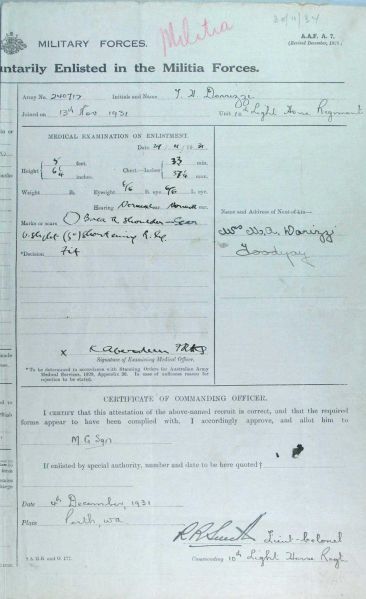 20/11/34
Militia
MILITARY FORCES.
A.A.F. A. 7.
(Revised December, 1929.)
untarily Enlisted in the Militia Forces.
Army No. 240717 Initials and Name J. H Darrizzi
Joined on 13th Nov 1931 Unit 10th Light Horse Regiment
MEDICAL EXAMINATION ON ENLISTMENT.
Date 24 11 1931
Height 5 feet. Chest—Inches 33 min.
6¼ inches 37¼ max.
Weight lb. Eyesight 6/6 R. eye 6/6 L. eye.
Hearing Normal Normal ear.
Marks or scars Brea R Shoulder—Scar
V. slight (½") shortening R. leg
*Decision Fit
Name and Address of Next-of-kin—
Mrs M.A. Darizzi
Toodyay
x K Aberdeen
Signature of Examining Medical Officer.
*To be determined in accordance with Standing Orders for Australian Army
Medical Services, 1929, Appendix 20. In case of unfitness reason for
rejection to be stated.
CERTIFICATE OF COMMANDING OFFICER.
I CERTIFY that this attestation of the above-named recruit is correct, and that the required
forms appear to have been complied with. I accordingly approve, and allot him to
M.G Sqn
If enlisted by special authority, number and date to be quoted†
Date 4th December, 1931
Place Perth, WA
R R Smith Lieut-Colonel
Commanding 10th Light Horse Regt